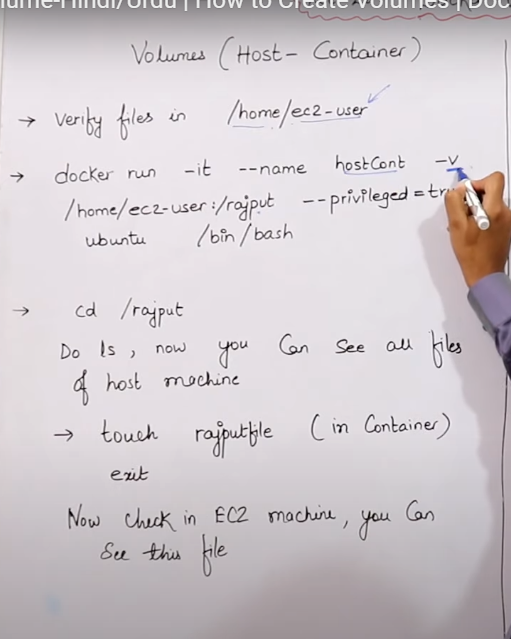 lume-Hindi/Urdu | How to Create Volumes | Doc
Volumes (Host - Container)
→ Verify files in /home/ec2-user
→ docker run -it --name hostCont -v
/home/ec2-user:/rajput --privileged=tru
ubuntu /bin/bash
→ cd /rajput
Do ls, now you Can See all files
of host machine
→ touch rajputfile (in Container)
exit
Now check in EC2 machine, you Can
See this file